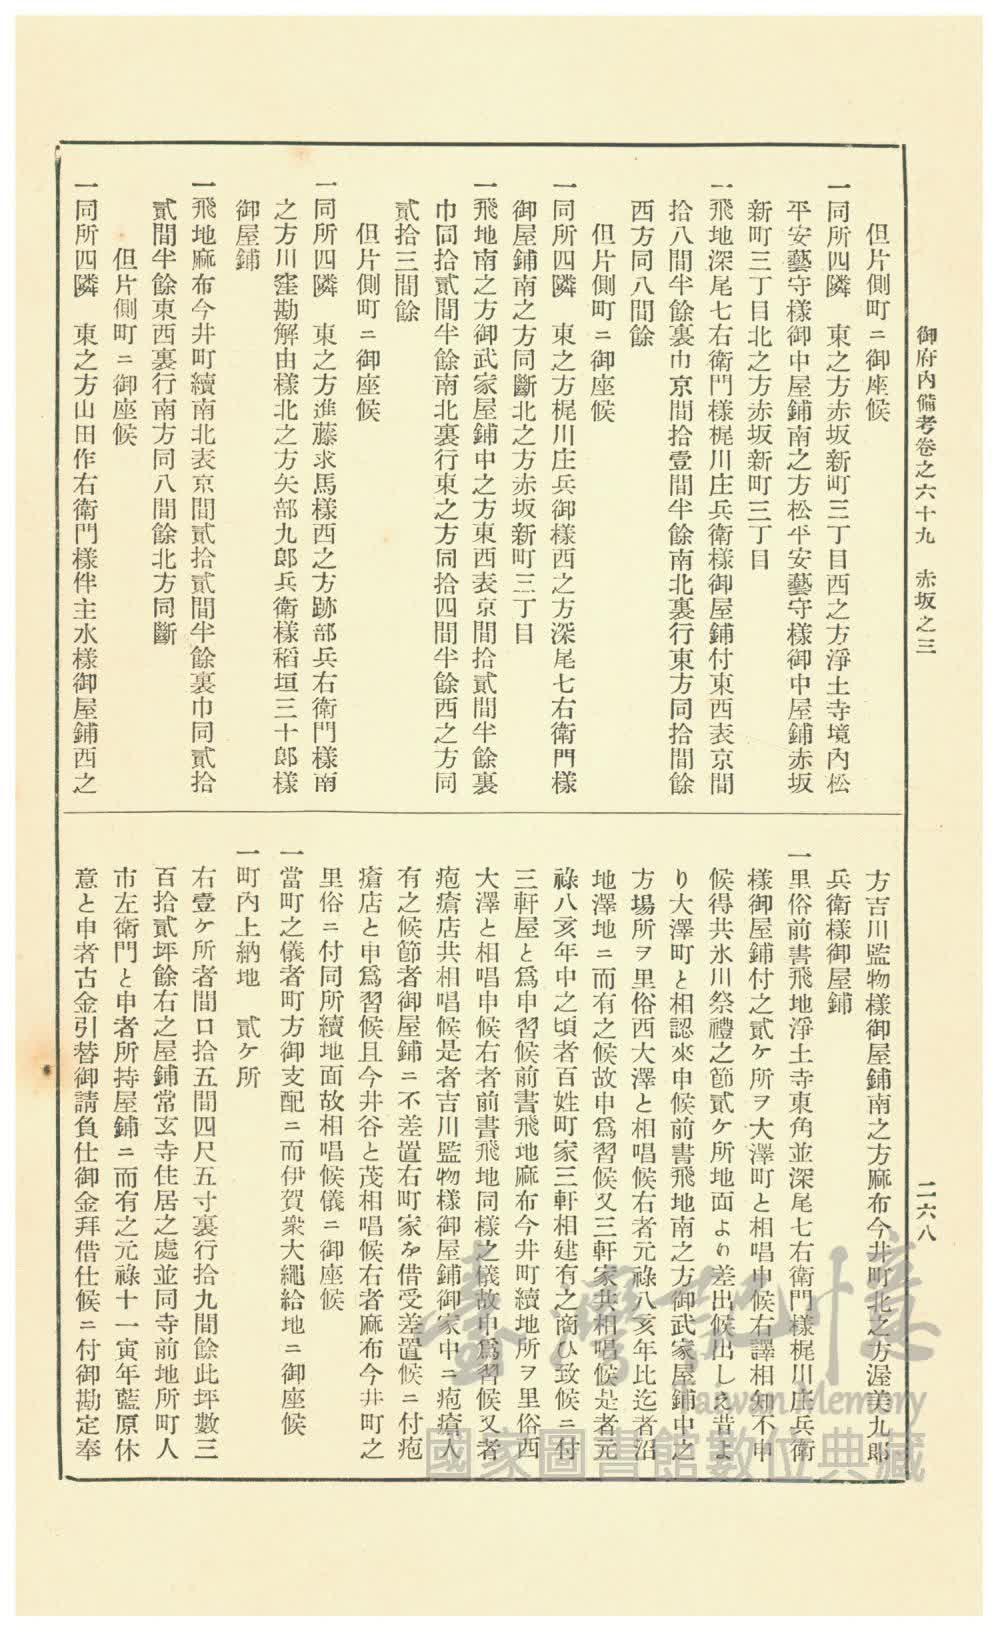 御府內備考卷之六十九　赤坂之三
二六八
但片側町ニ御座候
一同所四隣　東之方赤坂新町三丁目西之方淨土寺境內松
平安藝守樣御中屋鋪南之方松平安藝守樣御中屋鋪赤坂
新町三丁目北之方赤坂新町三丁目
一飛地深尾七右衞門樣梶川庄兵衞樣御屋鋪付東西表京間
拾八間半餘裏巾京間拾壹間半餘南北裏行東方同拾間餘
西方同八間餘
但片側町ニ御座候
一同所四隣　東之方梶川庄兵御樣西之方深尾七右衞門樣
御屋鋪南之方同斷北之方赤坂新町三丁目
一飛地南之方御武家屋鋪中之方東西表京間拾貳間半餘裏
巾同拾貳間半餘南北裏行東之方同拾四間半餘西之方同
貳拾三間餘
但片側町ニ御座候
一同所四隣　東之方進藤求馬樣西之方跡部兵右衞門樣南
之方川窪勘解由樣北之方矢部九郞兵衞樣稻垣三十郞樣
御屋鋪
一飛地麻布今井町續南北表京間貳拾貳間半餘裏巾同貳拾
貳間半餘東西裏行南方同八間餘北方同斷
但片側町ニ御座候
一同所四隣　東之方山田作右衞門樣伴主水樣御屋鋪西之
方吉川監物樣御屋鋪南之方麻布今井町北之方渥美九郞
兵衞樣御屋鋪
一里俗前書飛地淨土寺東角並深尾七右衞門樣梶川庄兵衞
樣御屋鋪付之貳ケ所ヲ大澤町と相唱申候右譯相知不申
候得共氷川祭禮之節貳ケ所地面より差出候出しえ昔よ
り大澤町と相認來申候前書飛地南之方御武家屋鋪中之
方場所ヲ里俗西大澤と相唱候右者元祿八亥年比迄者沼
地澤地ニ而有之候故申爲習候又三軒家共相唱候是者元
祿八亥年中之頃者百姓町家三軒相建有之商ひ致候ニ付
三軒屋と爲申習候前書飛地麻布今井町續地所ヲ里俗西
大澤と相唱申候右者前書飛地同樣之儀故申爲習候又者
疱瘡店共相唱候是者吉川監物樣御屋鋪御家中ニ疱瘡人
有之候節者御屋鋪ニ不差置右町家を借受差置候ニ付疱
瘡店と申爲習候且今井谷と茂相唱候右者麻布今井町之
里俗ニ付同所續地面故相唱候儀ニ御座候
一當町之儀者町方御支配ニ而伊賀衆大繩給地ニ御座候
一町內上納地　貳ケ所
右壹ケ所者間口拾五間四尺五寸裏行拾九間餘此坪數三
百拾貳坪餘右之屋鋪常玄寺住居之處並同寺前地所町人
市左衞門と申者所持屋鋪ニ而有之元祿十一寅年藍原休
意と申者古金引替御請負仕御金拜借仕候ニ付御勘定奉
臺灣記憶
Taiwan Memory
國家圖書館數位典藏